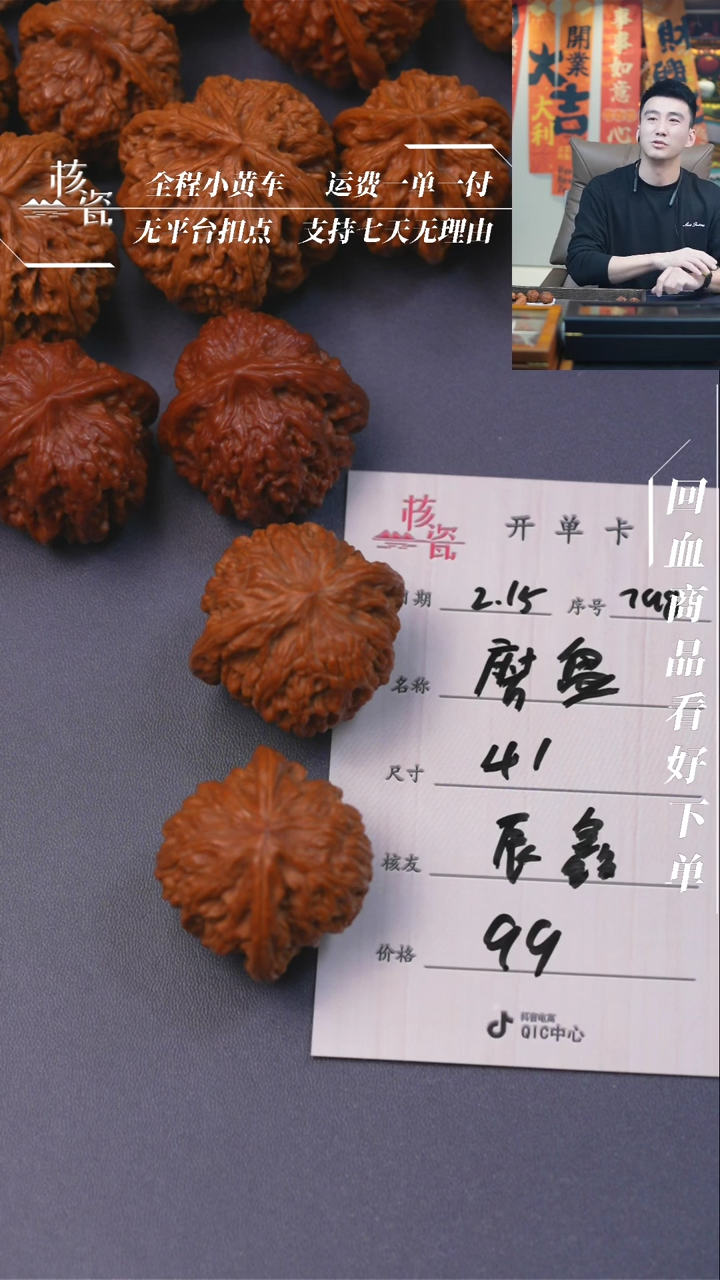 核瓷
全程小黄车 运费一单一付
无平台扣点 支持七天无理由
開業
大吉
大利
事事如意
心
財
回血商品看好下单
核瓷
开单卡
日期 2.15 序号
名称 磨盘
尺寸 41
核友 辰鑫
价格 99
抖音电商
QIC中心